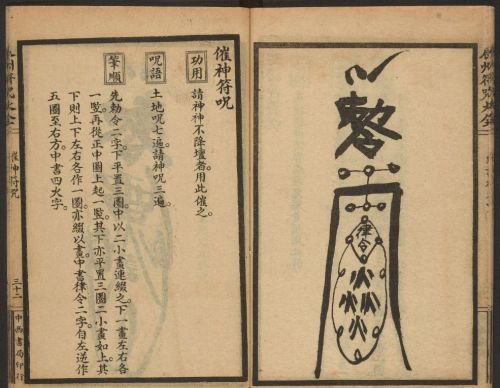 勅
律令
火
火火
火
催神符呪
功用
請神神不降壇者用此催之。
呪語
土地呪七遍。請神呪三遍。
筆順
先勅令二字。下平置三圈。中以二小畫連綴之。下一畫左右各
一竪。再從正中圈上起一竪。其下亦平置三圈。二小畫如上。其
下則上下左右各作一圈。亦綴以畫。中書律令二字。自左逆作
五圈至右方。中書四火字。
催神符咒
三十二
中西書局印行